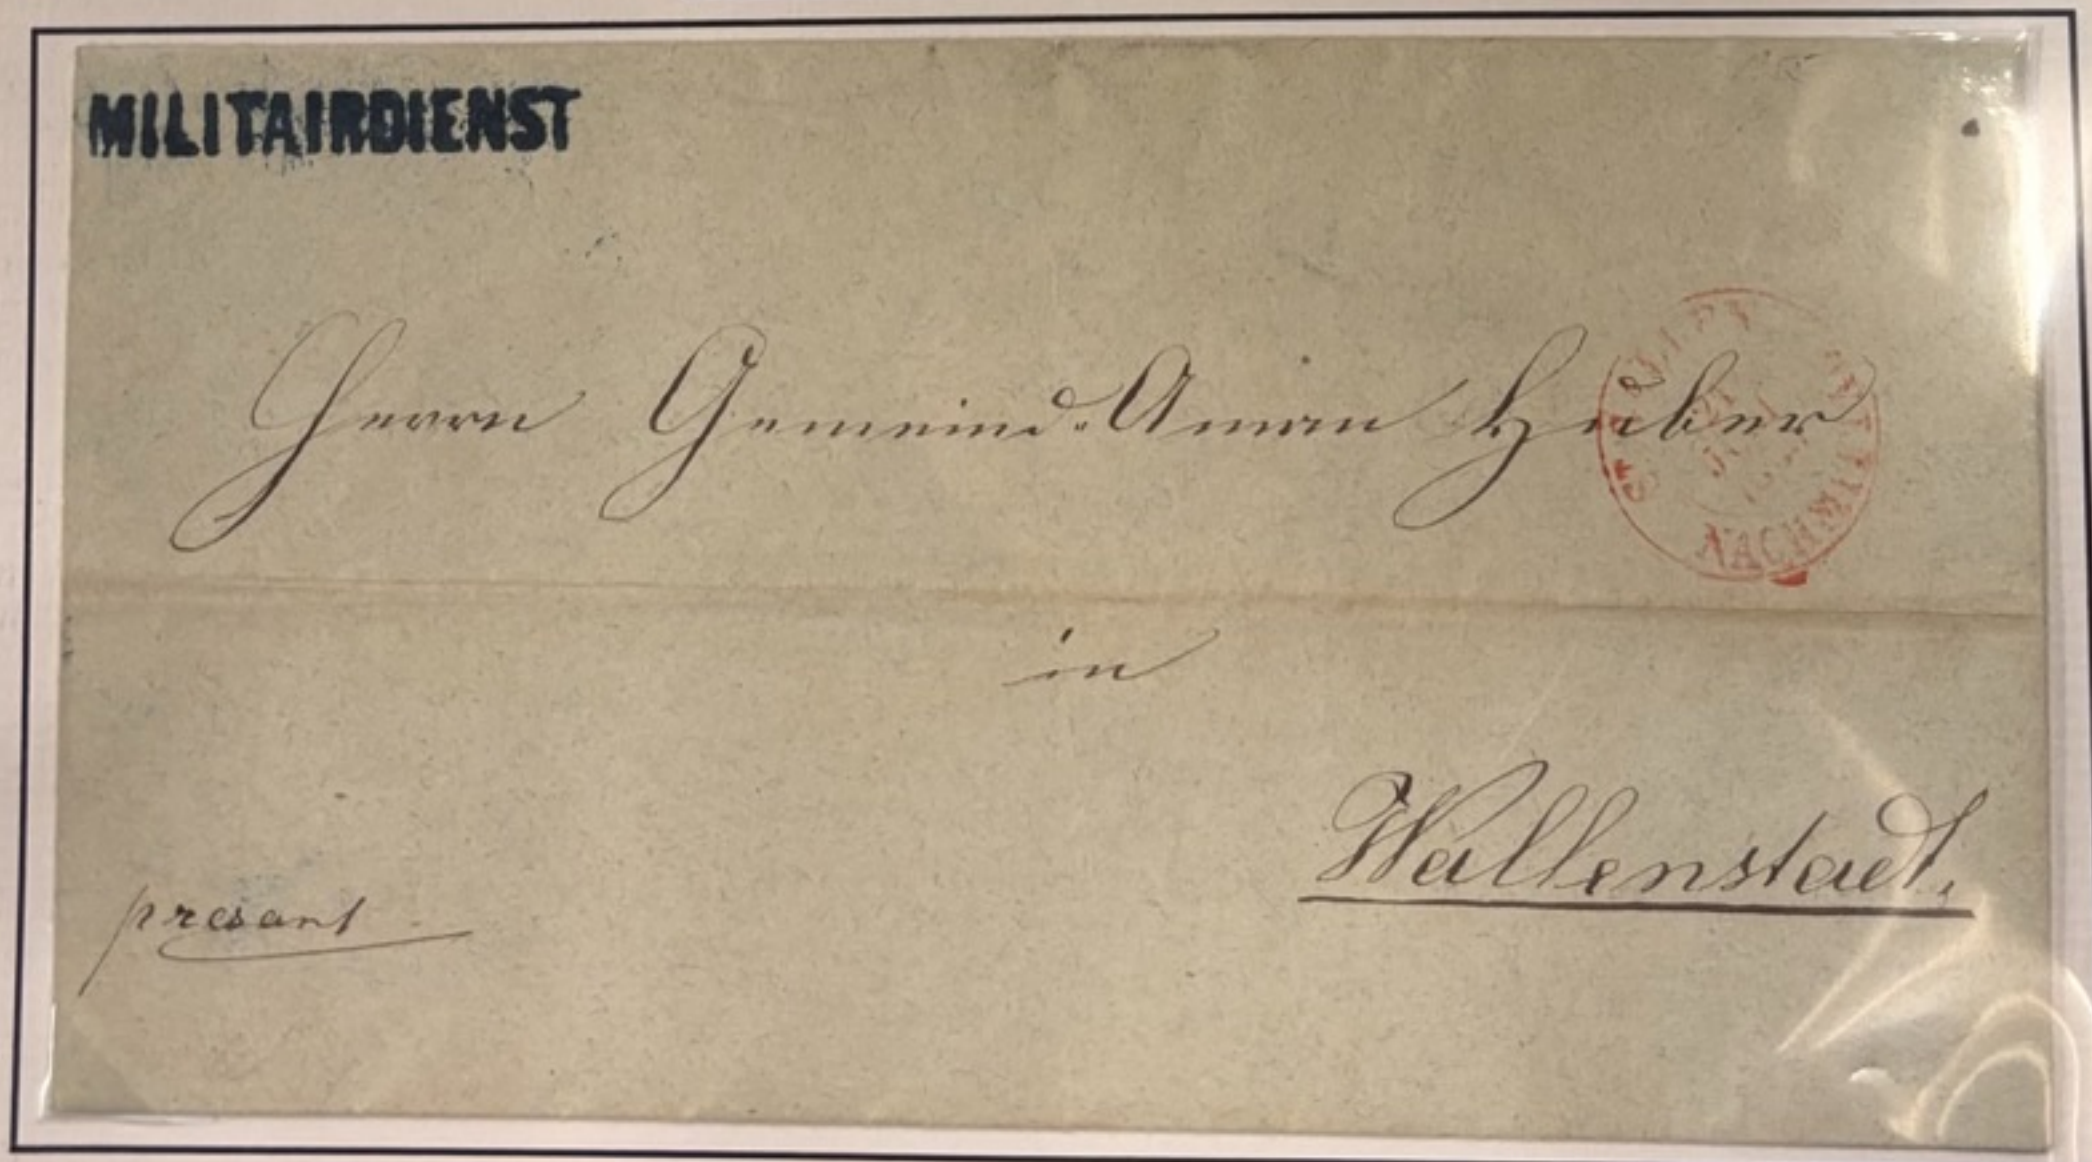 MILITAIRDIENST
Herrn Gemeind-Aman Huber
NACHMITTAG
in
Wallenstadt.
presant